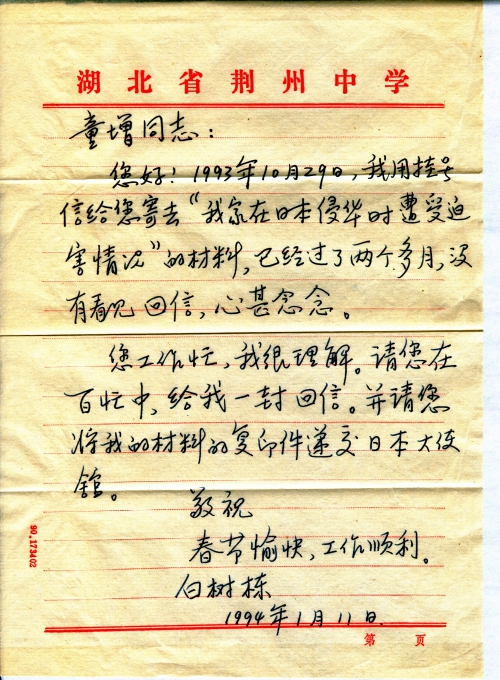 湖北省荆州中学
童增同志：
您好！1993年10月29日，我用挂号
信给您寄去“我家在日本侵华时遭受迫
害情况”的材料，已经过了两个多月，没
有看见回信，心甚念念。
您工作忙，我很理解。请您在
百忙中，给我一封回信。并请您
将我的材料的复印件递交日本大使
馆。
敬祝
春节愉快，工作顺利。
白树栋
1994年1月11日
第 页
90.173402